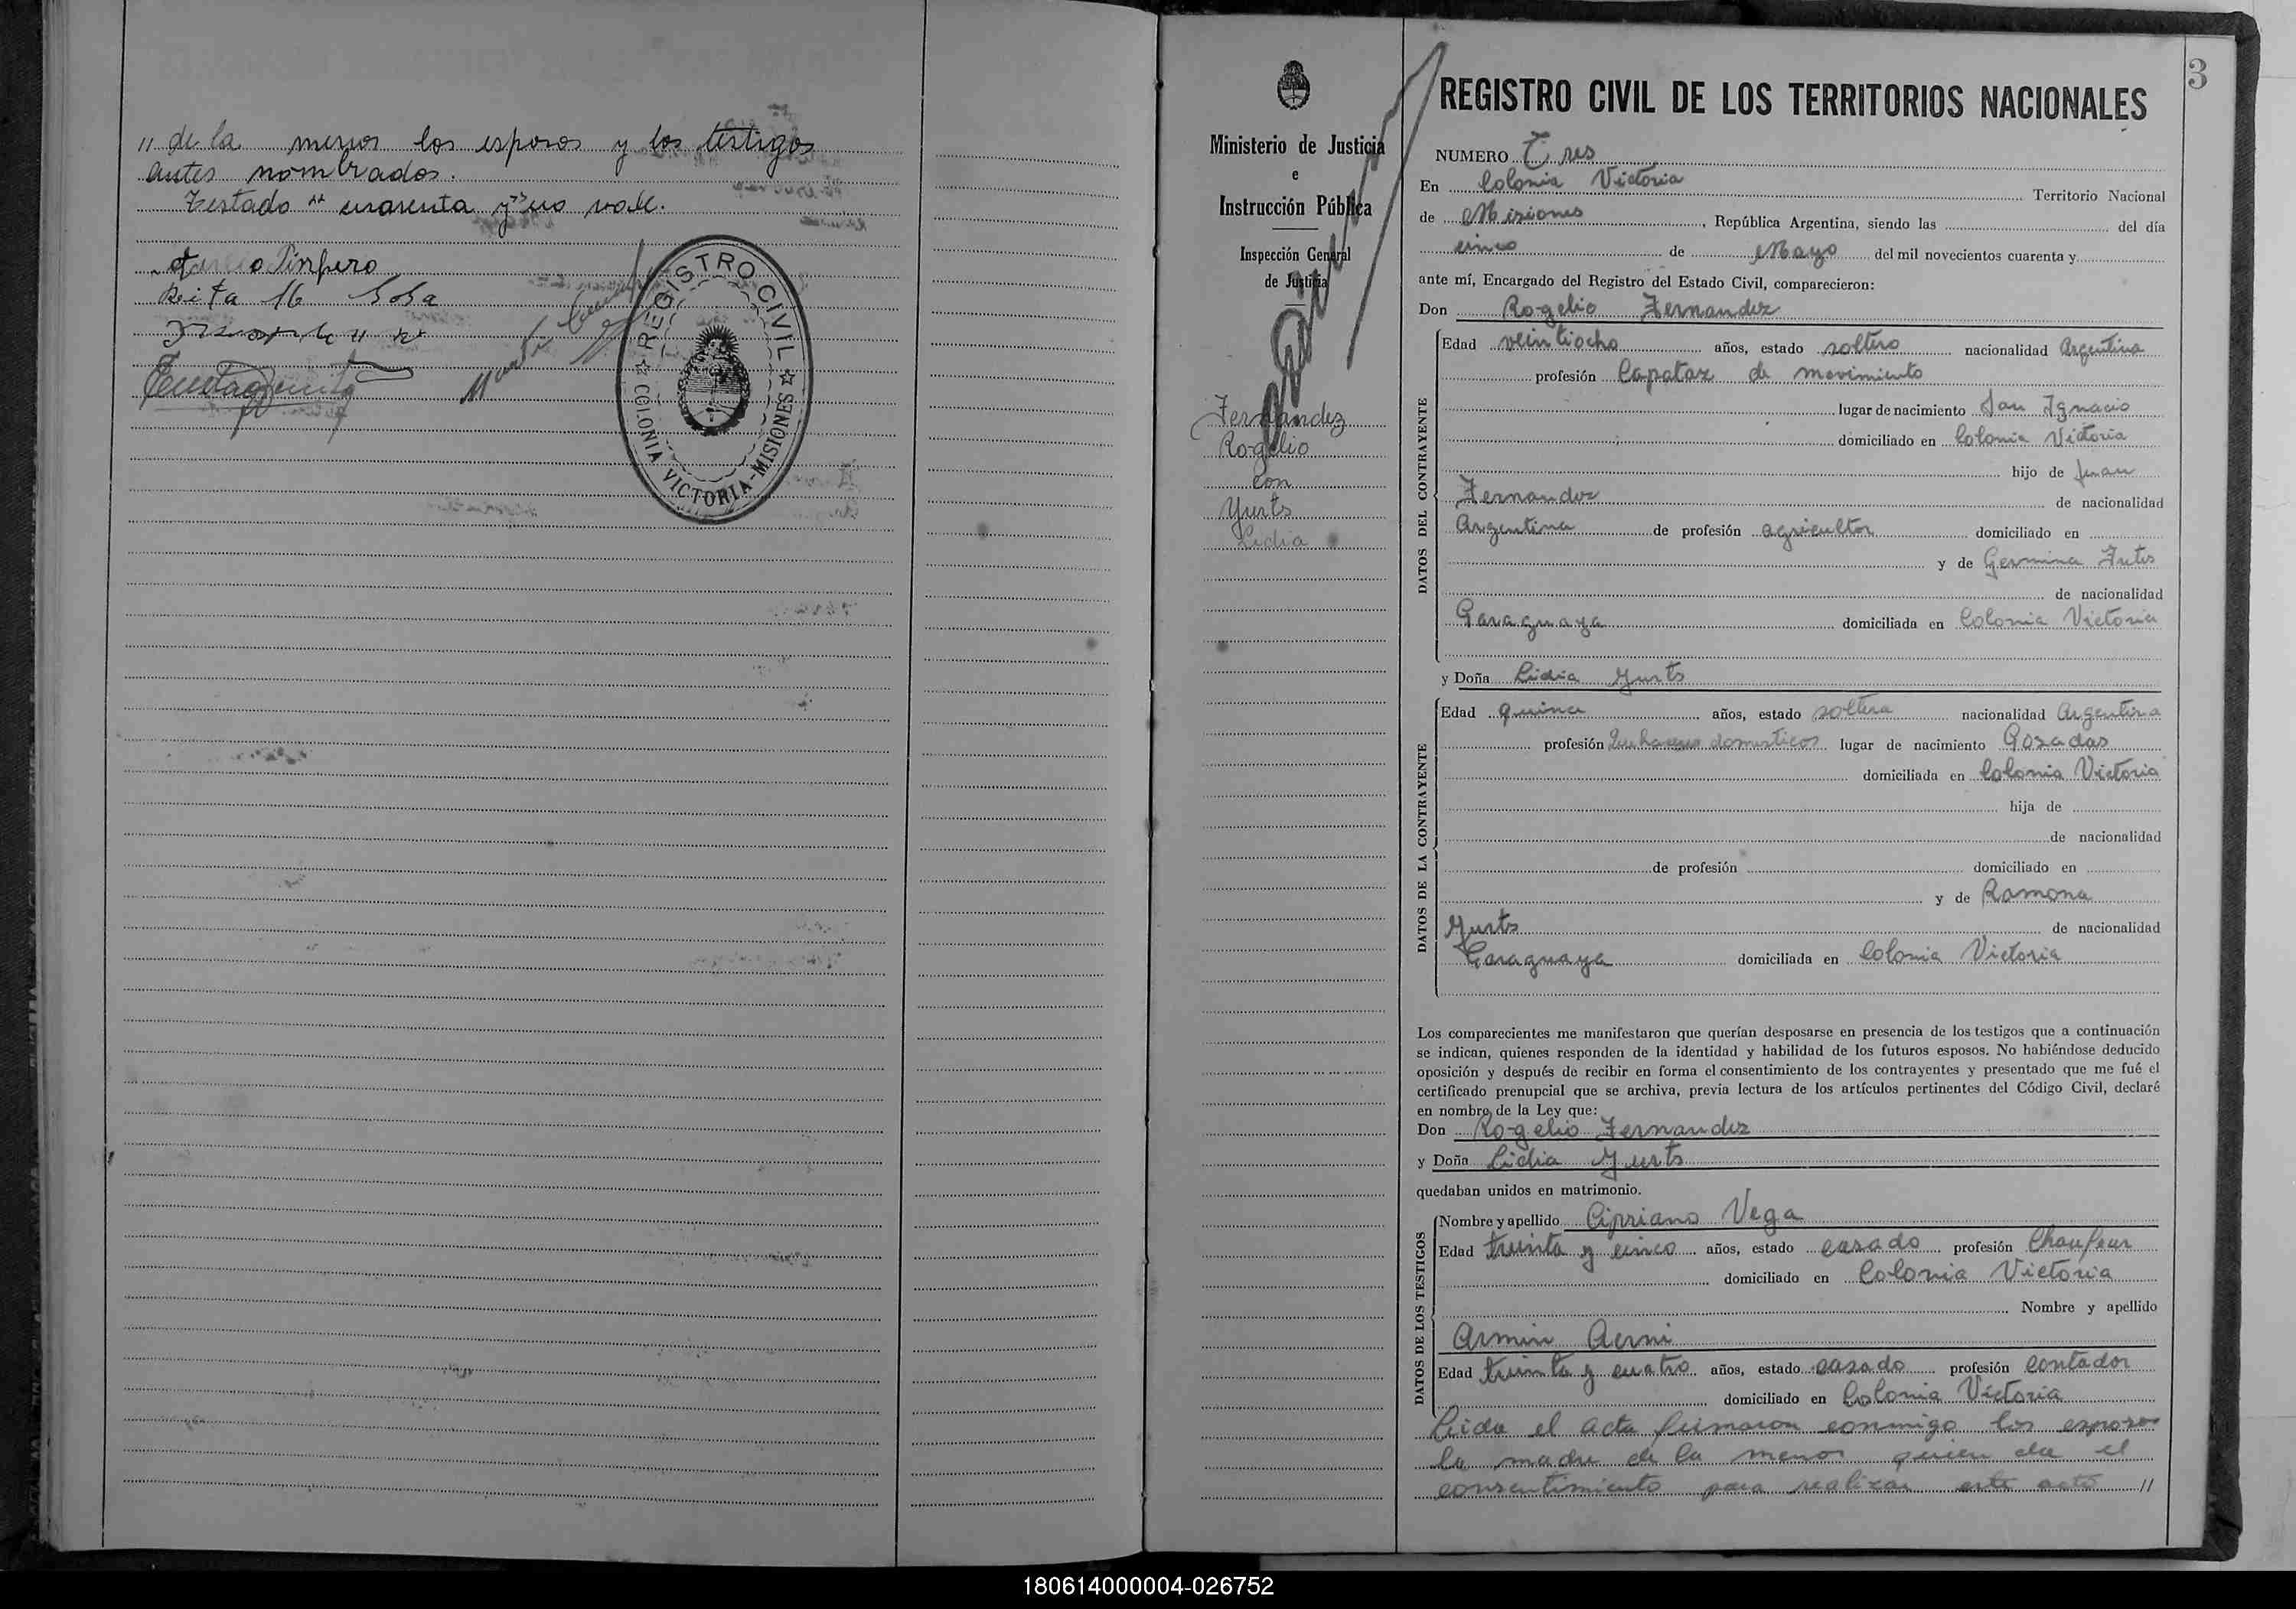 " de la menor los esposos y los testigos
antes nombrados.
Testado "cuarenta y" no vale.
REGISTRO CIVIL
COLONIA VICTORIA - MISIONES
Ministerio de Justicia
e
Instrucción Pública
Inspección General
de Justicia
Fernandez
Rogelio
con
Yurts
Lidia
3
REGISTRO CIVIL DE LOS TERRITORIOS NACIONALES
NUMERO Tres
En Colonia Victoria Territorio Nacional
de Misiones, República Argentina, siendo las del día
cinco de Mayo del mil novecientos cuarenta y
ante mí, Encargado del Registro del Estado Civil, comparecieron:
Don Rogelio Fernandez
DATOS DEL CONTRAYENTE
Edad veintiocho años, estado soltero nacionalidad Argentina
profesión Capataz de movimiento
lugar de nacimiento San Ignacio
domiciliado en Colonia Victoria
hijo de Juan
Fernandez de nacionalidad
Argentina de profesión agricultor domiciliado en
y de Germina
de nacionalidad
Paraguaya domiciliada en Colonia Victoria
y Doña Lidia Yurts
DATOS DE LA CONTRAYENTE
Edad quince años, estado soltera nacionalidad Argentina
profesión Quehaceres domesticos lugar de nacimiento Posadas
domiciliada en Colonia Victoria
hija de
de nacionalidad
de profesión domiciliado en
y de Ramona
Yurts de nacionalidad
Paraguaya domiciliada en Colonia Victoria
Los comparecientes me manifestaron que querían desposarse en presencia de los testigos que a continuación
se indican, quienes responden de la identidad y habilidad de los futuros esposos. No habiéndose deducido
oposición y después de recibir en forma el consentimiento de los contrayentes y presentado que me fué el
certificado prenupcial que se archiva, previa lectura de los artículos pertinentes del Código Civil, declaré
en nombre de la Ley que:
Don Rogelio Fernandez
y Doña Lidia Yurts
quedaban unidos en matrimonio.
DATOS DE LOS TESTIGOS
Nombre y apellido Cipriano Vega
Edad treinta y cinco años, estado casado profesión Chaufeur
domiciliado en Colonia Victoria
Nombre y apellido
Armin Aerni
Edad treinta y cuatro años, estado casado profesión contador
domiciliado en Colonia Victoria
Leida el acta firmaron conmigo los esposos
la madre de la menor quien da el
consentimiento para realizar este acto "
180614000004-026752